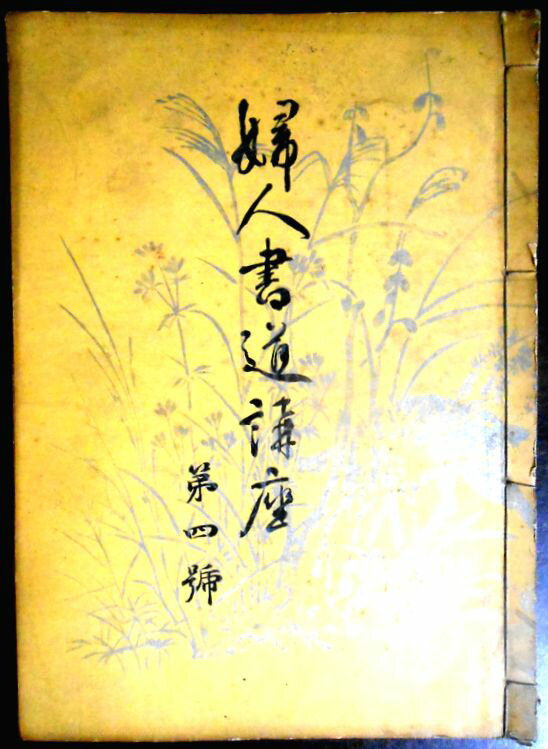 婦人書道講座
第四號